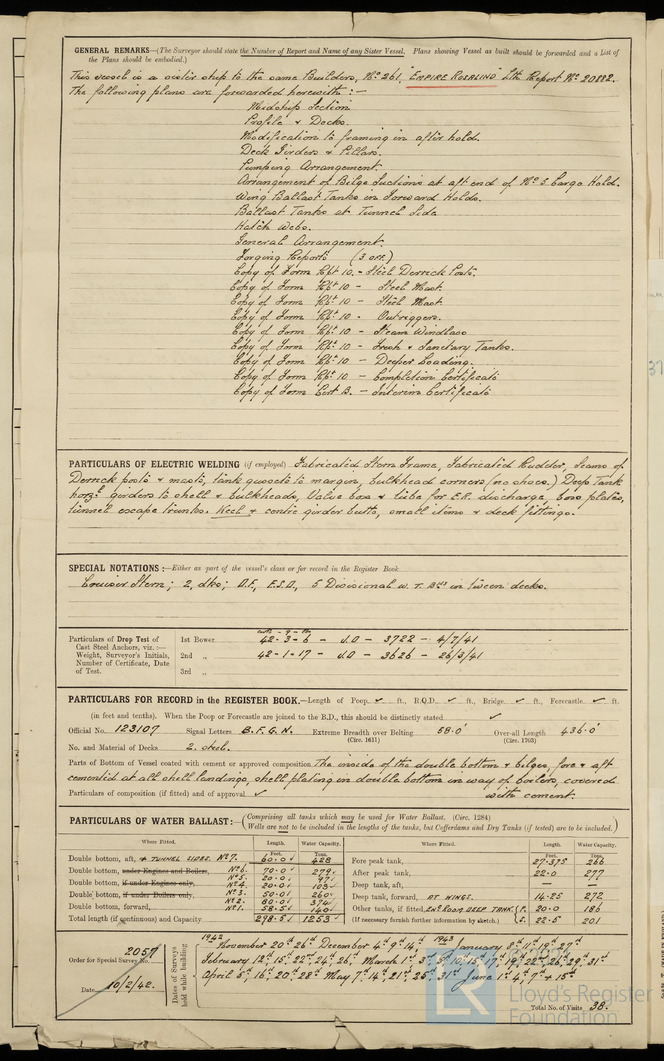 GENERAL REMARKS—(The Surveyor should state the Number of Report and Name of any Sister Vessel. Plans showing Vessel as built should be forwarded and a List of
the Plans should be embodied.)
This vessel is a sister ship to the same Builders, No 261, "EMPIRE ROSALIND" Lth Report No 20892.
The following plans are forwarded herewith :—
Midship Section
Profile & Decks.
Modification to framing in after hold.
Deck Girders & Pillars.
Pumping Arrangement.
Arrangement of Bilge Suctions at aft end of No 3 Cargo Hold.
Wing Ballast Tanks in Forward Holds.
Ballast Tanks at Tunnel Side
Hatch Webs.
General Arrangement.
Forging Reports (3 off.)
Copy of Form Rpt 10. - Steel Derrick Posts.
Copy of Form Rpt 10 - Steel Mast
Copy of Form Rpt 10 - Steel Mast
Copy of Form Rpt 10 - Outriggers.
Copy of Form Rpt 10 - Steam Windlass
Copy of Form Rpt 10 - Fresh & Sanitary Tanks.
Copy of Form Rpt 10 - Deeper Loading.
Copy of Form Rpt 10 - Completion Certificate
Copy of Form Cert B. - Interim Certificate
PARTICULARS OF ELECTRIC WELDING (if employed) Fabricated Stern Frame, Fabricated Rudder, Seams of
Derrick posts & masts, tank gussets to margin, bulkhead corners (no shoes.) Deep Tank
horzl girders to shell & bulkheads, Valve box & tube for E.R. discharge, boss plates,
tunnel escape trunks. Keel & centre girder butts, small items & deck fittings.
SPECIAL NOTATIONS :—Either as part of the vessel's class or for record in the Register Book
Cruiser Stern; 2, dks; D.F, E.S.D, 5 Divisional W.T. Bhds in tween decks.
Particulars of Drop Test of
Cast Steel Anchors, viz. :—
Weight, Surveyor's Initials,
Number of Certificate, Date
of Test.
1st Bower 42-3-6 - J.D - 3722 - 4/7/41
2nd „ 42-1-17 - J.D - 3626 - 26/3/41
3rd „
PARTICULARS FOR RECORD in the REGISTER BOOK.—Length of Poop ✓ ft., R.Q.D. ✓ ft., Bridge ✓ ft., Forecastle ✓ ft.
(in feet and tenths). When the Poop or Forecastle are joined to the B.D., this should be distinctly stated ✓
Official No. 123107 Signal Letters B.F.G.N. Extreme Breadth over Belting 58.0' Over-all Length 436.0'
(Circ. 1611) (Circ. 1703)
No. and Material of Decks 2. steel.
Parts of Bottom of Vessel coated with cement or approved composition The inside of the double bottom & bilges, fore & aft
cemented at all shell landings, shell plating in double bottom in way of boilers, covered
Particulars of composition (if fitted) and of approval ✓ with cement.
PARTICULARS OF WATER BALLAST:— (Comprising all tanks which may be used for Water Ballast. (Circ. 1284)
Wells are not to be included in the lengths of the tanks, but Cofferdams and Dry Tanks (if tested) are to be included.)
Where Fitted. Length. Water Capacity. Where Fitted. Length. Water Capacity.
Feet. Tons. Feet. Tons.
Double bottom, aft, & TUNNEL SIDES. No 7. 60.0 428 Fore peak tank, 27.375 266
Double bottom, under Engines and Boilers, No 6. 70.0 279 After peak tank, 22.0 277
No 5. 20.0 47
Double bottom, if under Engines only, No 4. 20.0 103 Deep tank, aft,
Double bottom, if under Boilers only, No 3. 50.0 260 Deep tank, forward, AT WINGS. 14.25 272
Double bottom, forward, No 2. 80.0 374 Other tanks, if fitted, ENG ROOM DEEP TANK P. 20.0 186
No 1. 58.5 140
Total length (if continuous) and Capacity 298.5 1253 (If necessary furnish further information by sketch.) S. 22.5 201
Order for Special Survey No. 2057
Date 10/2/42.
Dates of Surveys held while building
1942 November 20th 26th December 4th 9th 14th 1943 January 8th 11th 19th 27th
February 12th 15th 22nd 24th 26th March 1st 3rd 5th 10th 15th 17th 19th 22nd 26th 29th 31st
April 5th 16th 20th 28th May 7th 14th 21st 26th 31st June 1st 4th 7th & 15th
Total No. of Visits 38.
LR
Lloyd's Register
Foundation